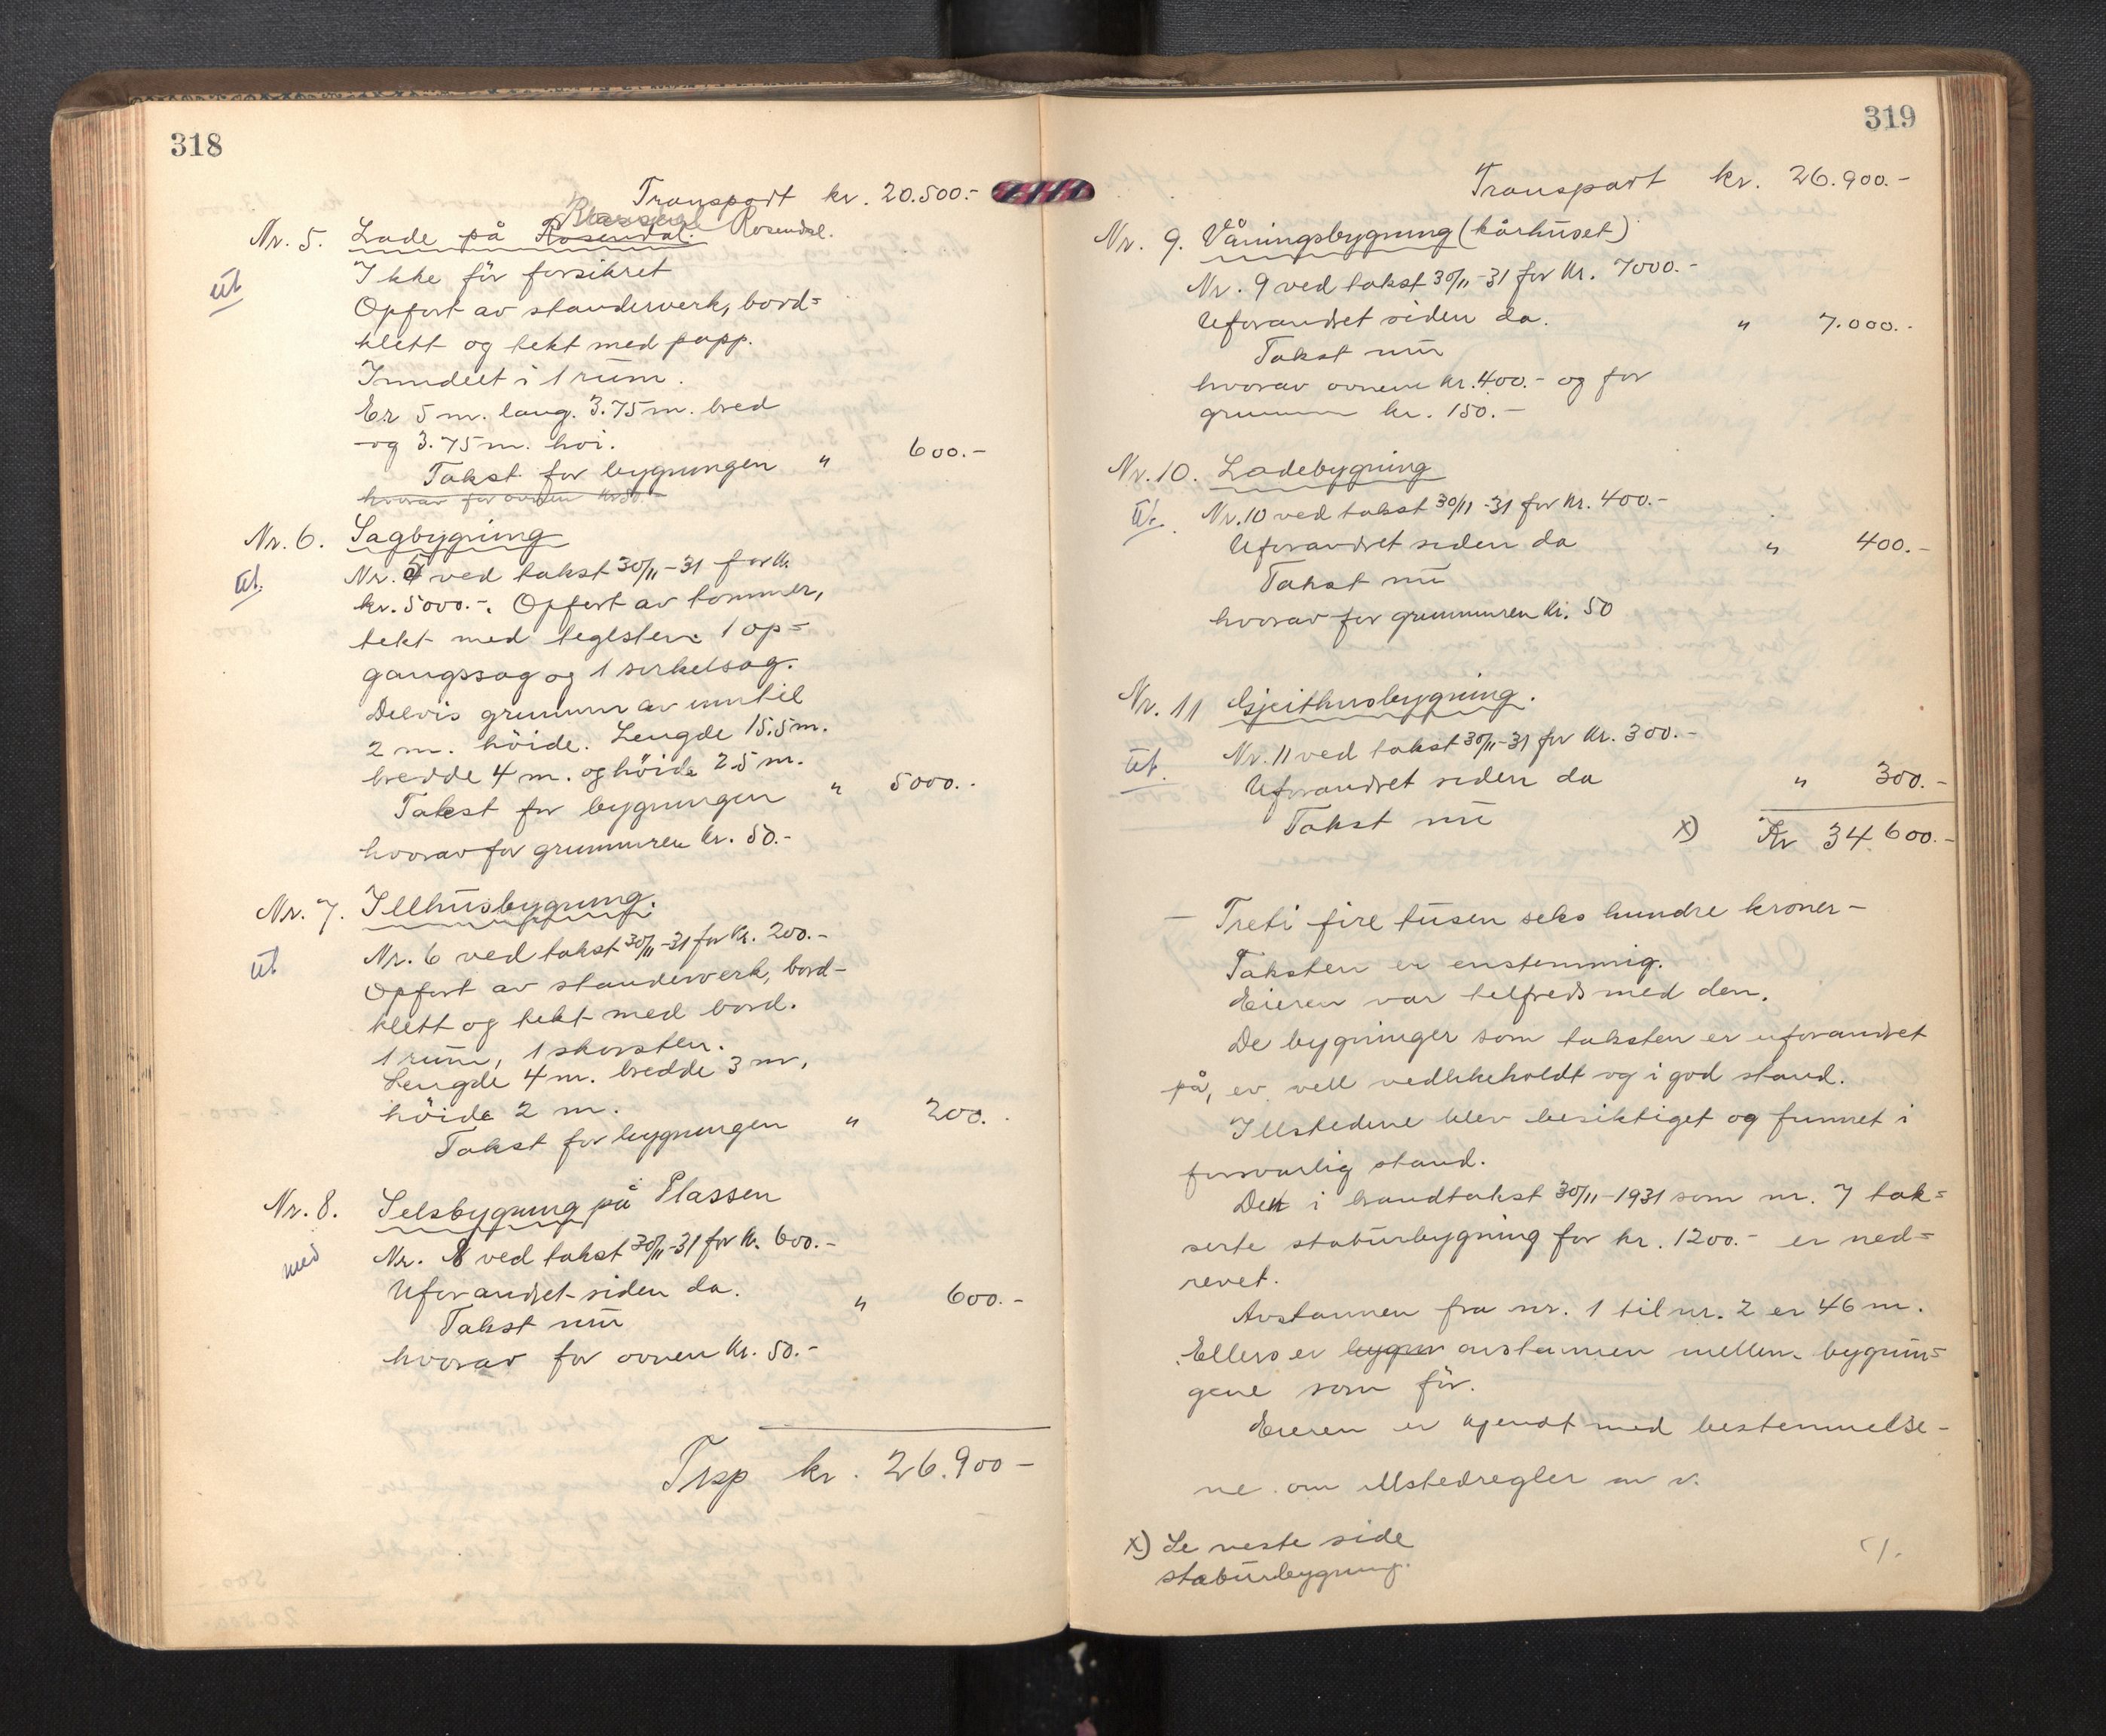 318
Transport kr. 20.500.-
Nr. 5. Lade på Rosendal. Rosendal.
Ut
Ikke för forsikret
Opfört av standerverk, bord=
klett og tekt med papp.
Inndelt i 1 rüm.
Er 5 m. lang. 3.75 m. bred
og 3.75 m. höi.
Takst for bygningen " 600.-
hvorav for ovnen kr 50.-
Nr. 6. Sagbygning
Ut.
Nr. 5 ved takst 30/11-31 for kr.
kr. 5000.-. Opfört av tömmer,
tekt med teglsten. 1 op=
gangssag og 1 sirkelsag.
Delvis grunnmur av inntil
2 m. höide. Lengde 15.5 m.
bredde 4 m. og höide 2.5 m.
Takst for bygningen " 5000.-
hvorav for grunnmuren kr. 50.-
Nr. 7. Illhüsbygning.
Ut
Nr. 6 ved takst 30/11-31 for kr. 200.-
Opfört av standerverk, bord-
klett og tekt med bord.
1 rüm, 1 skorsten.
Lengde 4 m. bredde 3 m,
höide 2 m.
Takst for bygningen " 200.-
Nr. 8. Selsbygning på Plassen
med
Nr. 8 ved takst 30/11-31 for kr. 600.-
Uforandret siden da.
" 600.-
Takst nü
hvorav for ovnen kr. 50.-
Trsp kr. 26.900-
319
Transport kr. 26.900.-
Nr. 9. Våningsbygning (kårhüset)
Nr. 9 ved takst 30/11-31 for kr. 7000.-
Uforandret siden da. " 7.000.-
Takst nü
hvorav ovnene kr. 400.- og for
grunnmur kr. 150.-
Nr. 10. Ladebygning
Ut.
Nr. 10 ved takst 30/11-31 for kr. 400.-
Uforandret siden da " 400.-
Takst nü
hvorav for grunnmuren kr. 50
Nr. 11 Gjeithusbygning.
Ut.
Nr. 11 ved takst 30/11-31 for kr. 300.-
Uforandret siden da " 300.-
Takst nü
x) Kr 34.600.-
- Treti fire tüsen seks hundre kroner -
Taksten er enstemmig.
Eieren var tilfreds med den.
De bygninger som taksten er uforandret
på, er vell vedlikeholdt og i god stand.
Illstedene blev besiktiget og funnet i
forsvarlig stand.
Den i brandtakst 30/11-1931 som nr. 7 tak=
serte stabürbygning for kr. 1200.- er ned=
revet.
Avstannen fra nr. 1 til nr. 2 er 46 m.
Ellers er bygni avstannen mellem bygnin=
gene som för.
Eieren er kjendt med bestemmelse-
ne om illstedregler m v.
x) Se neste side
stabürbygning.